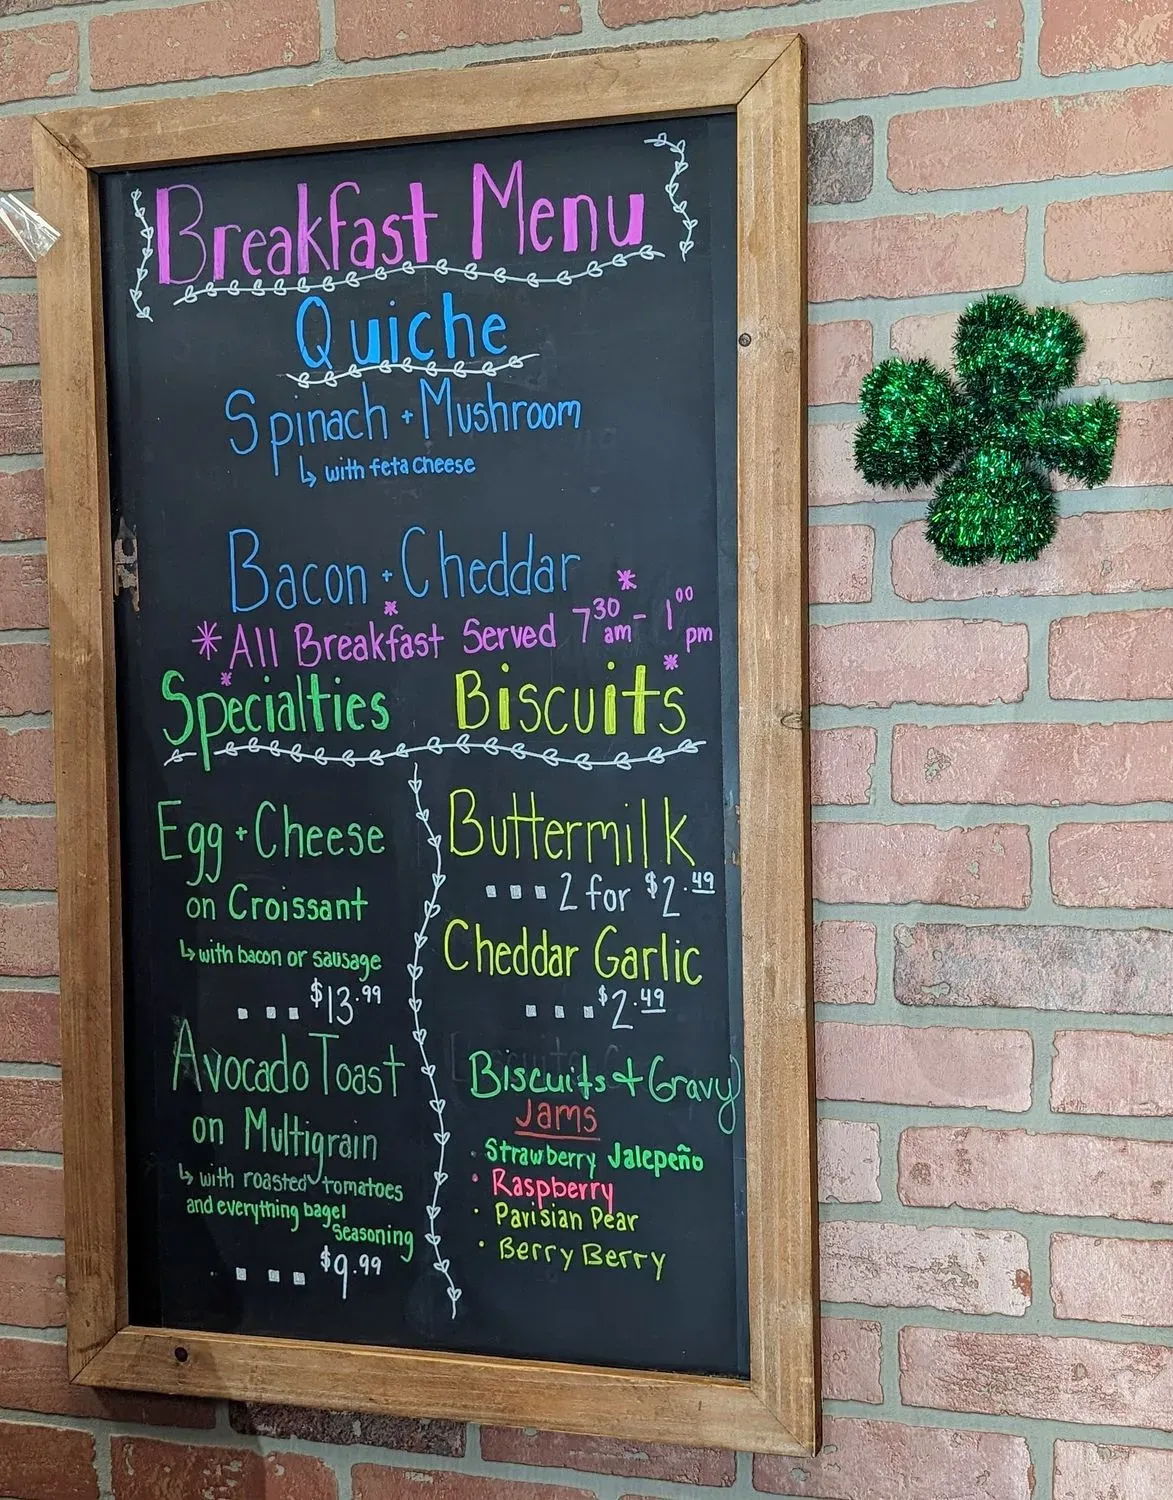 Breakfast Menu
Quiche
Spinach + Mushroom
↳ with feta cheese
Bacon + Cheddar
* All Breakfast Served 7 30 am - 1 00 pm *
Specialties
Egg + Cheese
on Croissant
↳ with bacon or sausage
... $13.99
Avocado Toast
on Multigrain
↳ with roasted tomatoes
and everything bagel
seasoning
... $9.99
Biscuits
Buttermilk
... 2 for $2.49
Cheddar Garlic
... $2.49
Biscuits + Gravy
Jams
· Strawberry Jalepeño
· Raspberry
· Parisian Pear
· Berry Berry